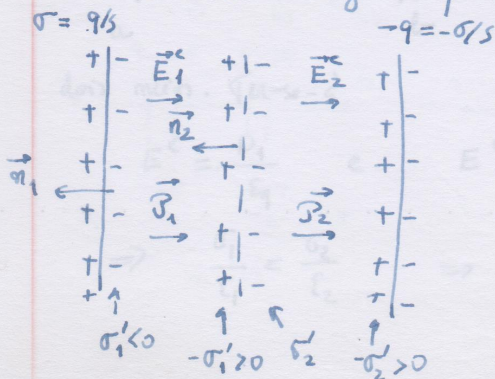 σ = q/s    -q = -σ/s
+ - E⃗₁ᶜ + - E⃗₂ᶜ + -
+ - n⃗₂ + - + -
n⃗₁ + - + - + -
+ - D⃗₁ D⃗₂ + -
+ - + - + -
+ + - + -
σ₁'<0 -σ₁'>0 σ₂' -σ₂'>0